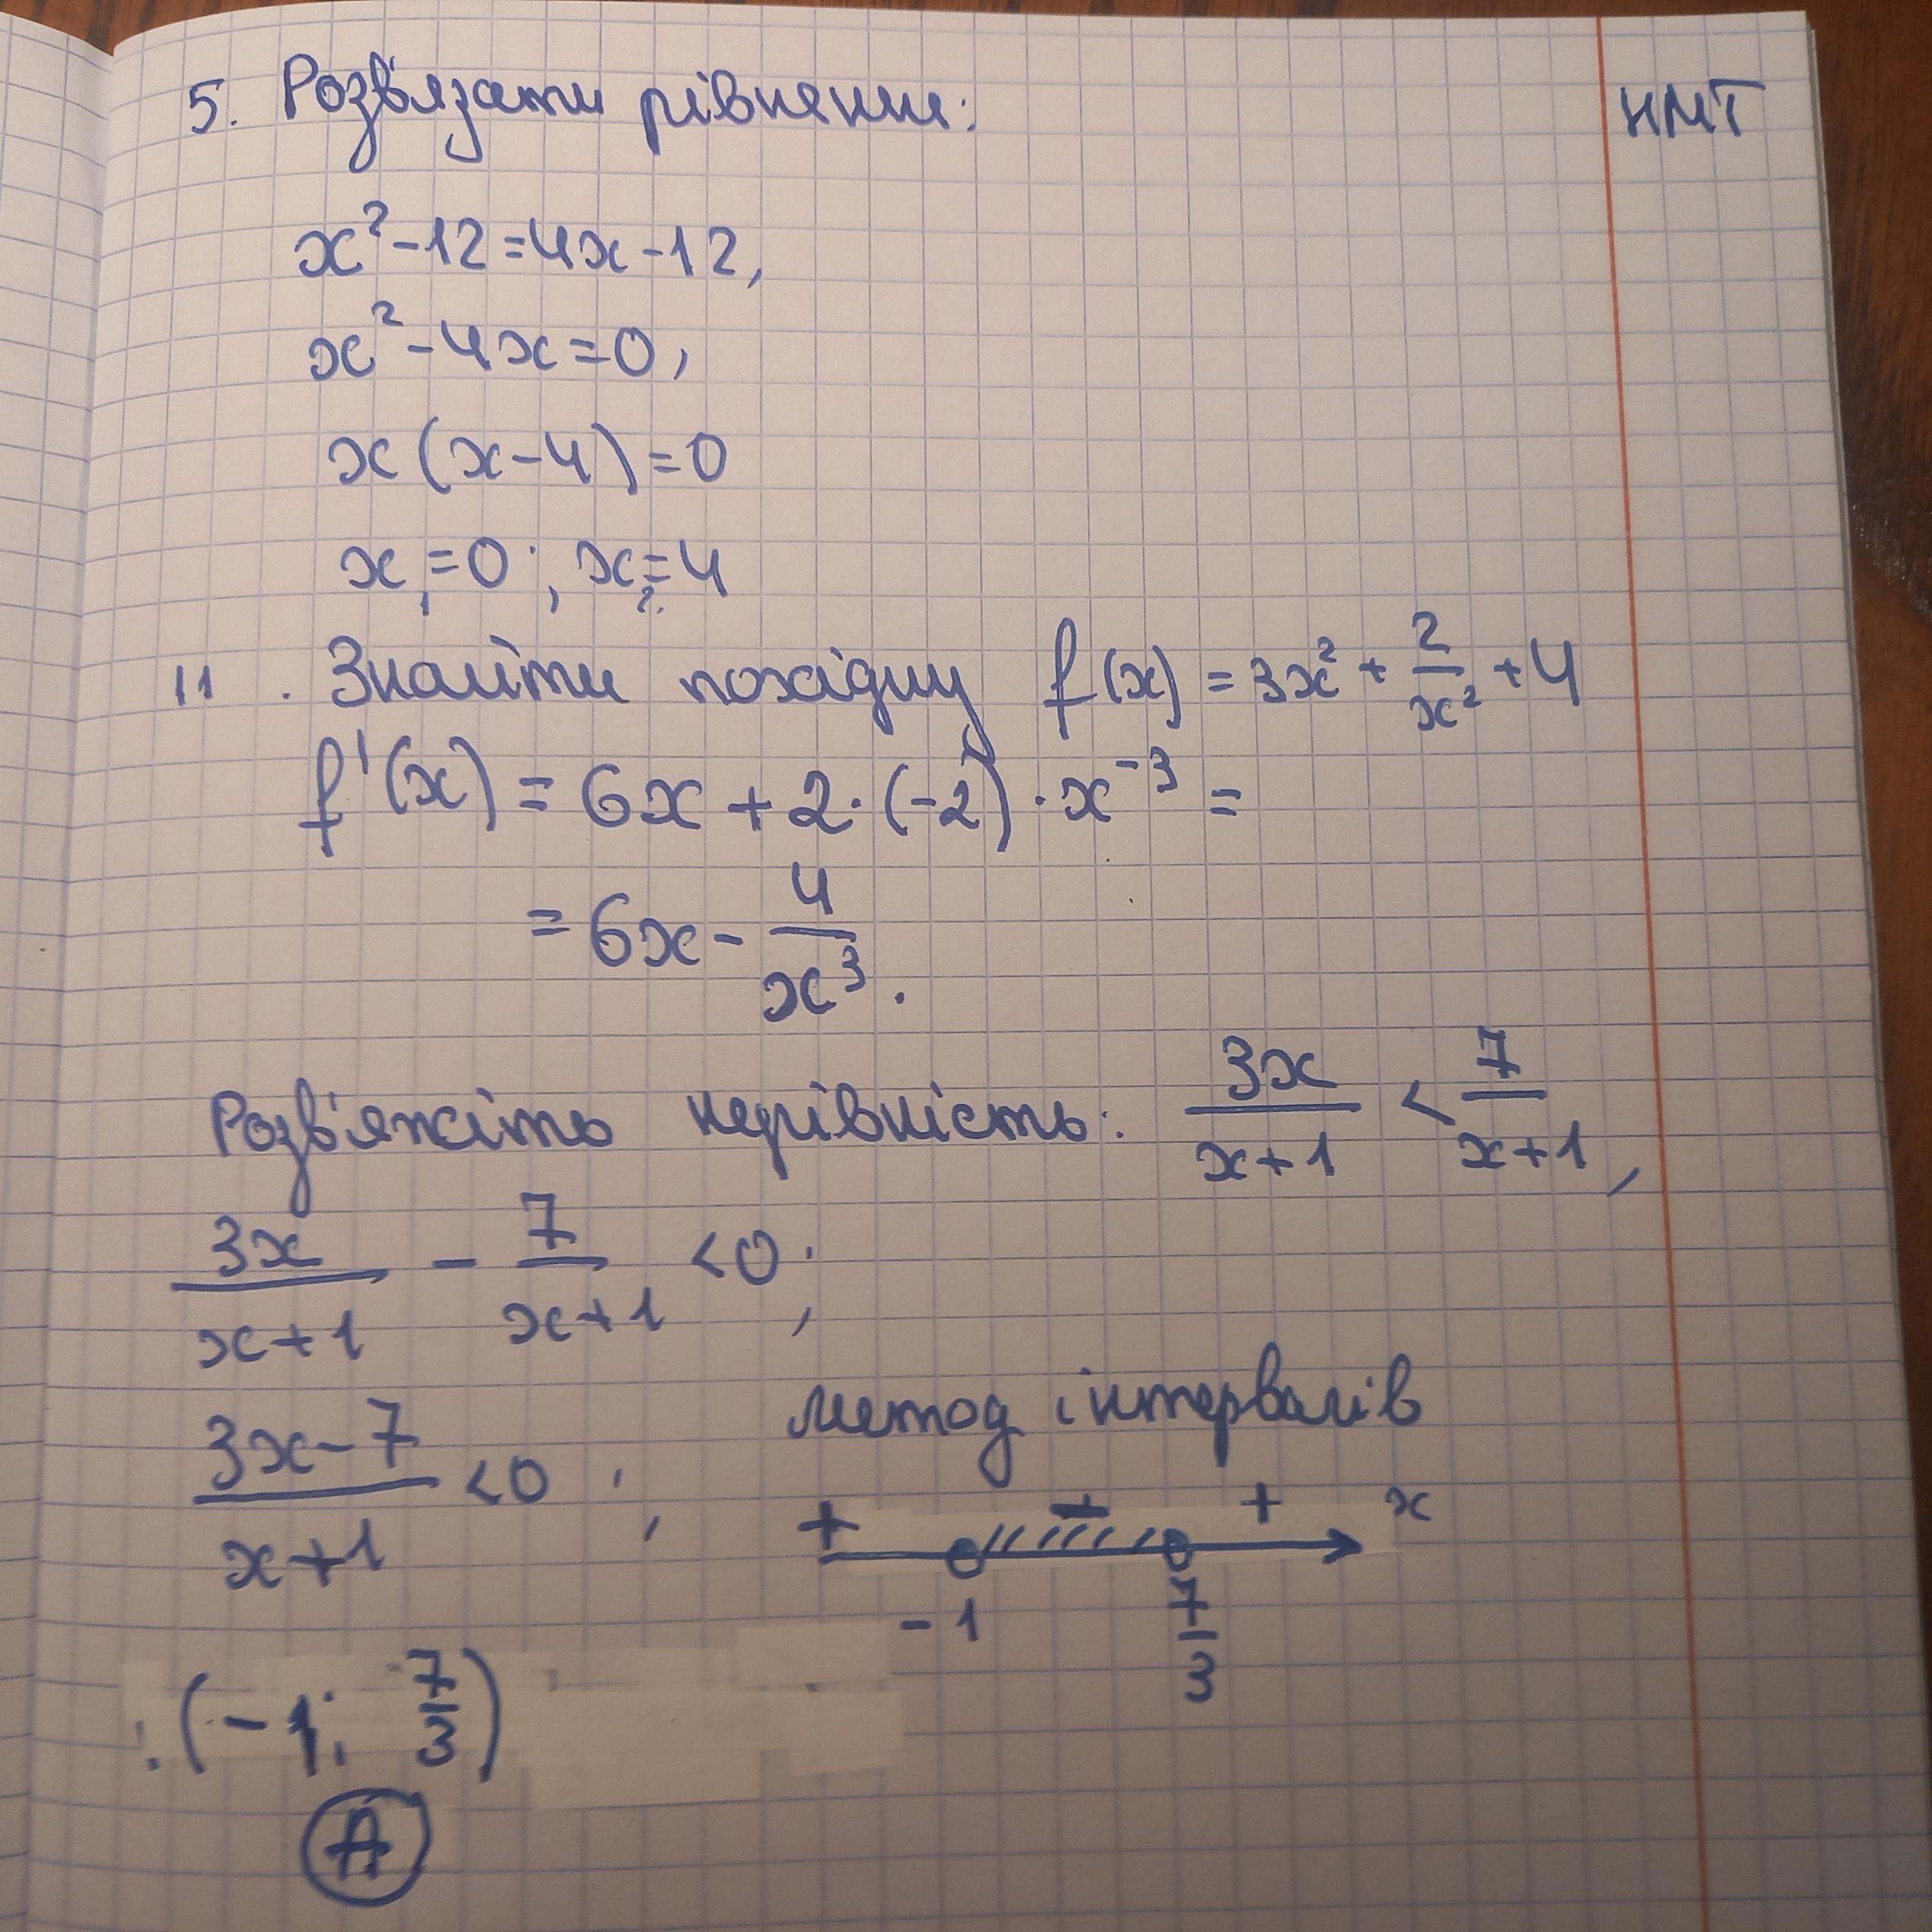 5. Розв'язати рівняння:
НМТ
x² - 12 = 4x - 12,
x² - 4x = 0,
x(x - 4) = 0
x₁ = 0; x₂ = 4
11. Знайти похідну f(x) = 3x² + 2/x² + 4
f'(x) = 6x + 2·(-2)·x⁻³ =
= 6x - 4/x³.
Розв'яжіть нерівність: 3x/(x+1) < 7/(x+1),
3x/(x+1) - 7/(x+1) < 0;
(3x-7)/(x+1) < 0;
метод інтервалів
+ - + x
-1 7/3
: (-1; 7/3)
А